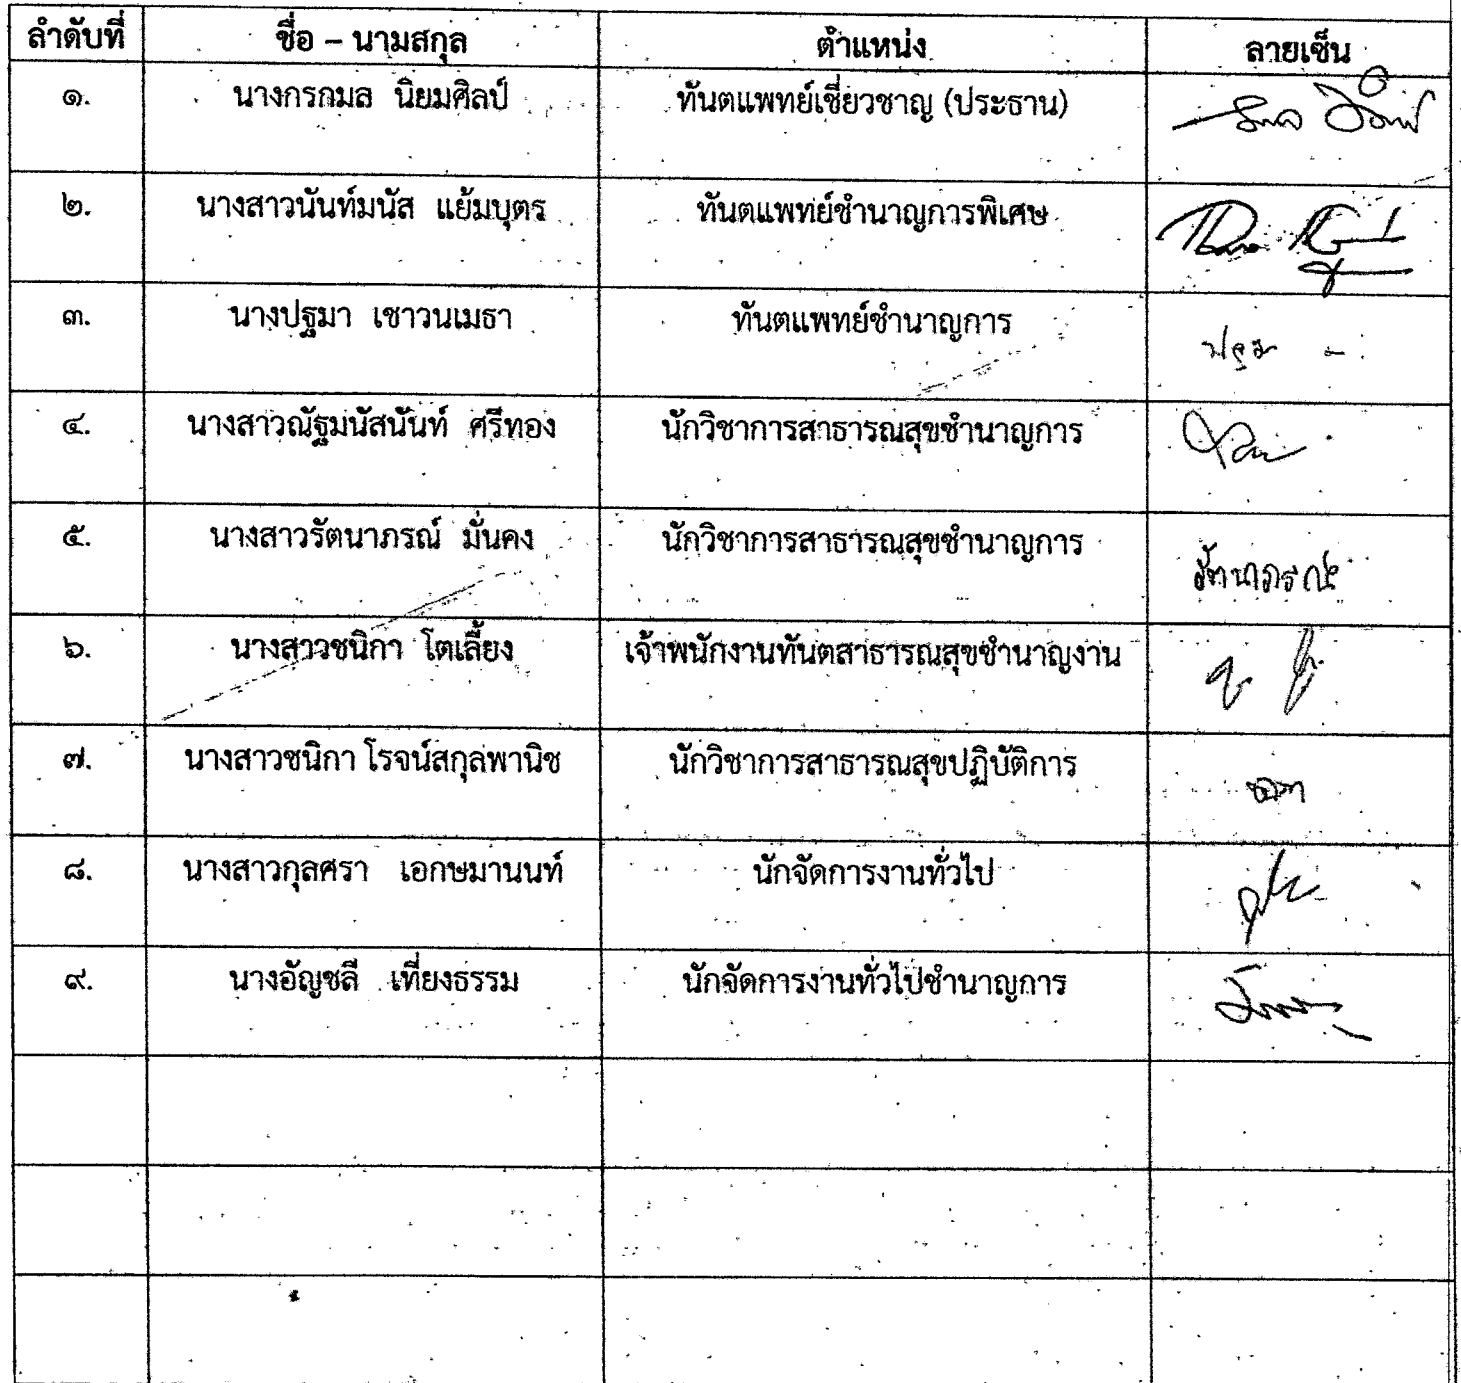 ลำดับที่ ชื่อ – นามสกุล ตำแหน่ง ลายเซ็น
๑. นางกรกมล นิยมศิลป์ ทันตแพทย์เชี่ยวชาญ (ประธาน)
๒. นางสาวนันท์มนัส แย้มบุตร ทันตแพทย์ชำนาญการพิเศษ
๓. นางปฐมา เชาวนเมธา ทันตแพทย์ชำนาญการ
๔. นางสาวณัฐมนัสนันท์ ศรีทอง นักวิชาการสาธารณสุขชำนาญการ
๕. นางสาวรัตนาภรณ์ มั่นคง นักวิชาการสาธารณสุขชำนาญการ รัตนาภรณ์
๖. นางสาวชนิกา โตเลี้ยง เจ้าพนักงานทันตสาธารณสุขชำนาญงาน
๗. นางสาวชนิกา โรจน์สกุลพานิช นักวิชาการสาธารณสุขปฏิบัติการ
๘. นางสาวกุลศรา เอกษมานนท์ นักจัดการงานทั่วไป
๙. นางอัญชลี เที่ยงธรรม นักจัดการงานทั่วไปชำนาญการ